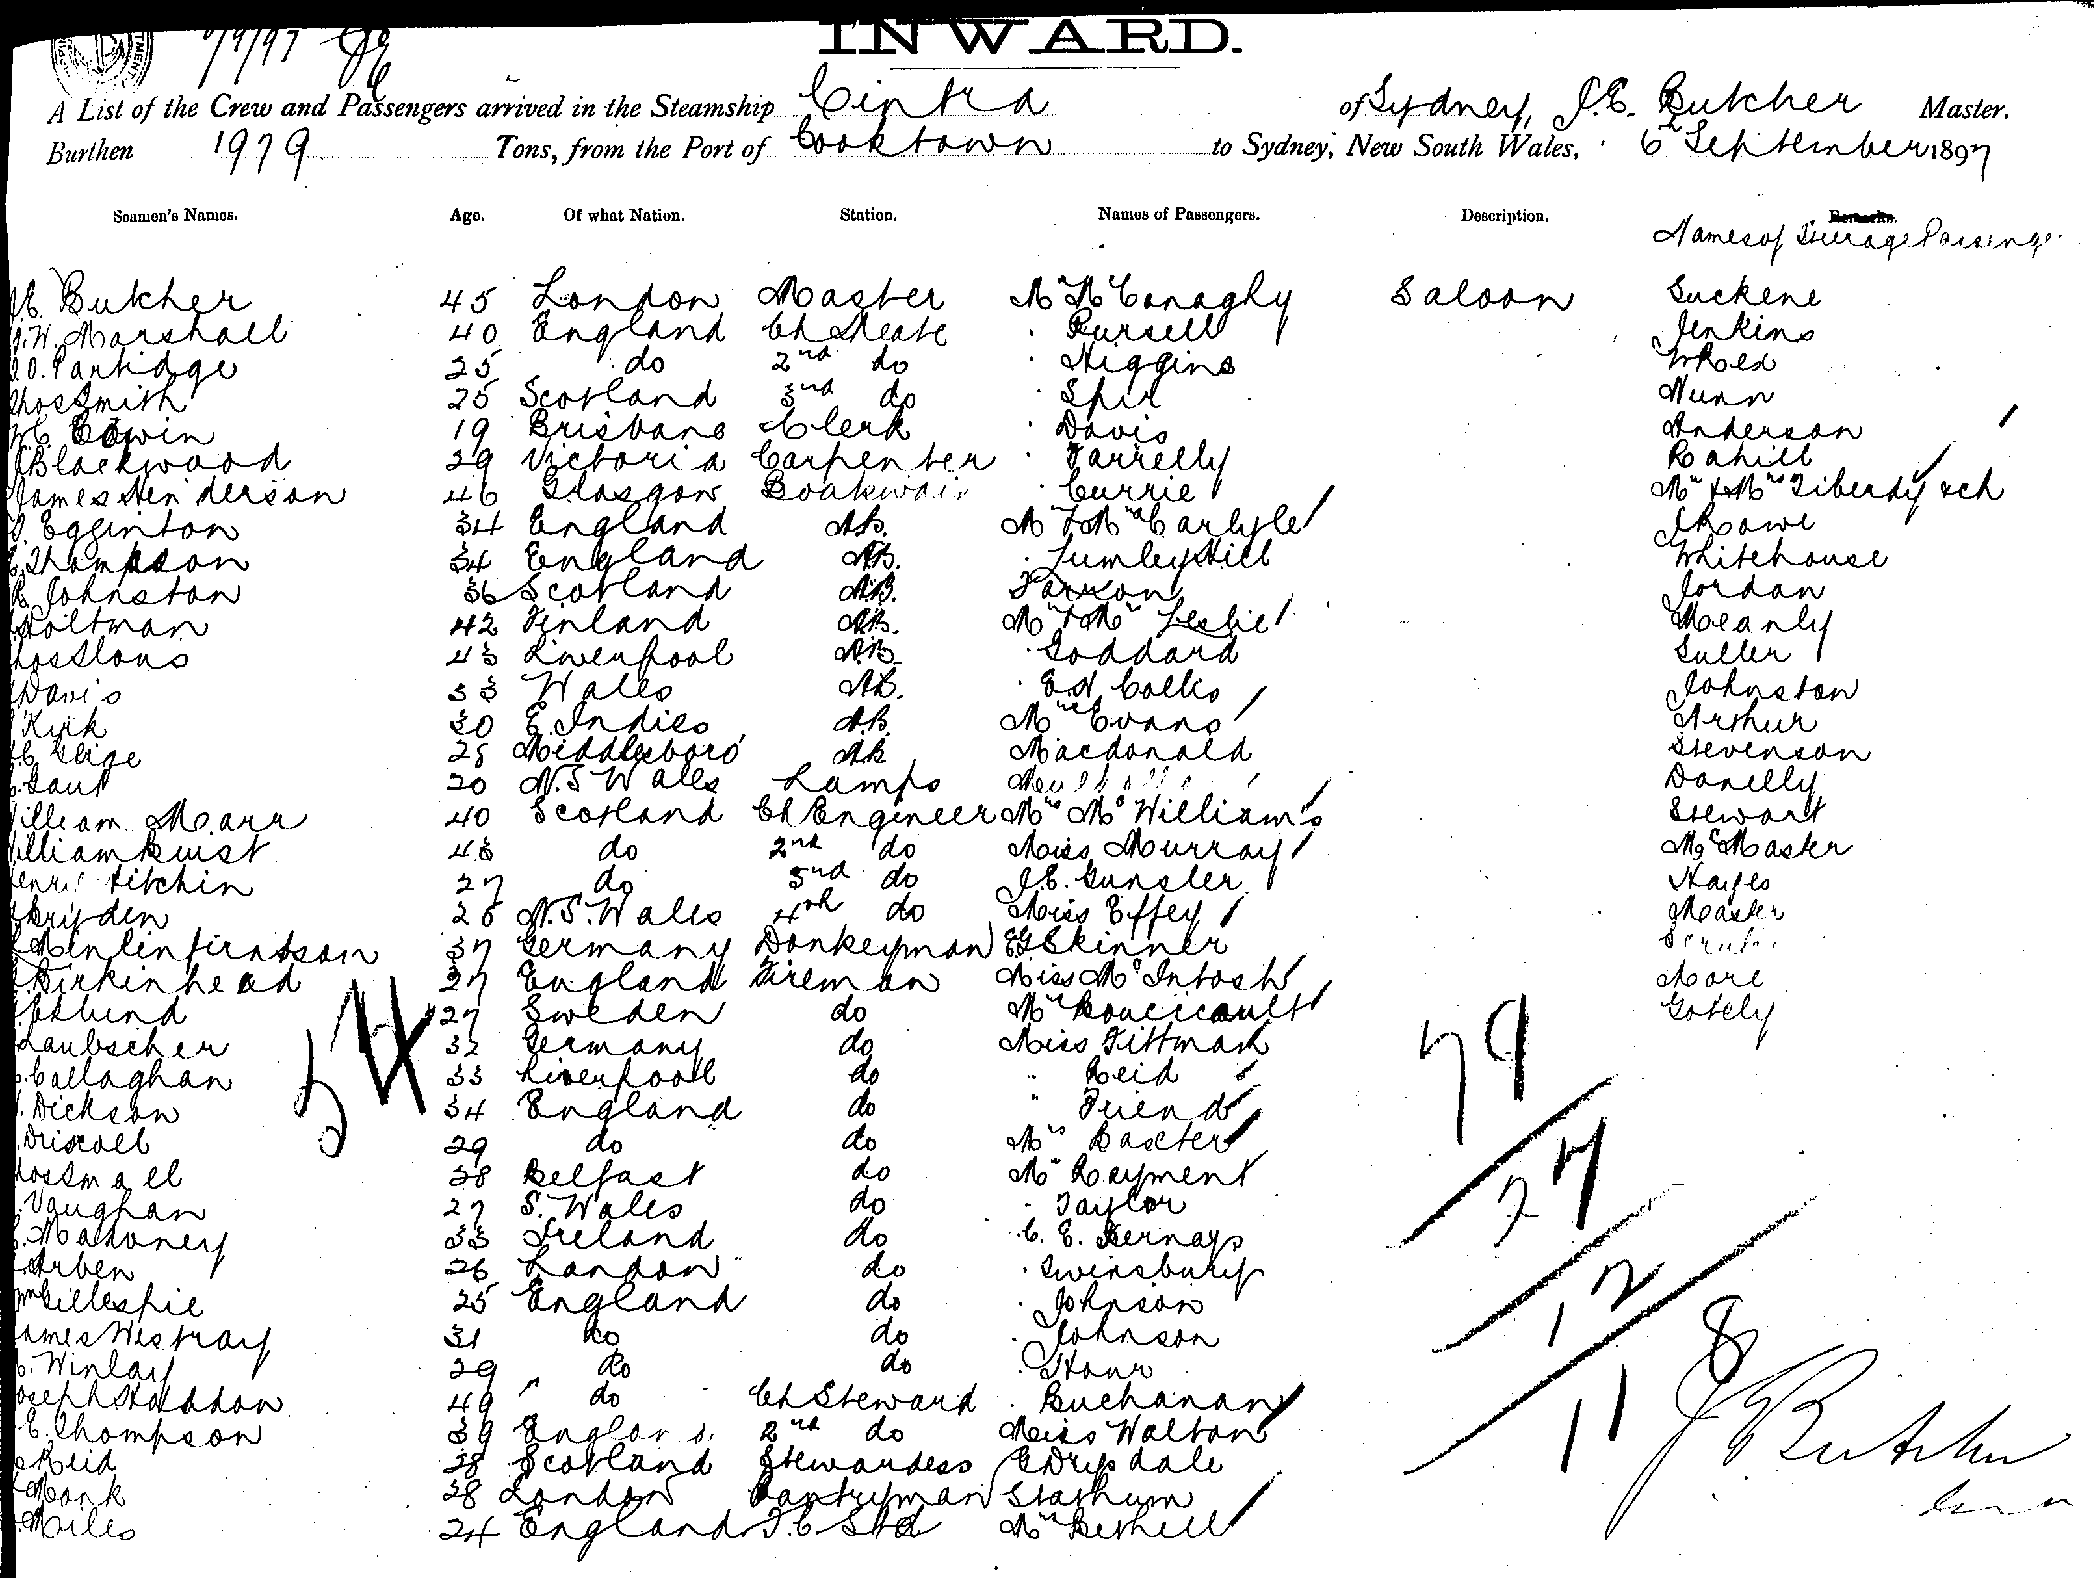 INWARD.
A List of the Crew and Passengers arrived in the Steamship Cintra of Sydney, J.E. Butcher Master.
Burthen 1979 Tons, from the Port of Cooktown to Sydney, New South Wales, 6th September 1897
Seamen's Names. Age. Of what Nation. Station. Names of Passengers. Description. Remarks.
Names of Steerage Passenge
J.E. Butcher 45 London Master Mr McConaghy Saloon Suckene
J.W. Marshall 40 England Ch Meate " Pursell Jenkins
O. Partidge 25 do 2nd do " Higgins
Thos Smith 25 Scotland 3rd do " Spir Nunn
Edwin 19 Brisbane Clerk " Davis Anderson
Blackwood 29 Victoria Carpenter " Farrelly Cahill
James Henderson 46 Glasgow Boatswain " Currie Mr & Mrs Liberdy & ch
Egginton 34 England AB. Mr & Mrs Carlyle J Rowe
Thompson 34 England AB. " Lumley Hill Whitehouse
Johnston 36 Scotland AB. Paxton Jordan
Holtman 42 Finland AB. Mr & Mrs Leslie Meanly
43 Liverpool AB " Goddard Fuller
Davis 33 Wales AB. " E.N. Collis Johnston
Kirk 30 E. Indies AB. Mrs Evans Arthur
28 Middlesboro AB Macdonald Stevenson
Gaut 20 N.S. Wales Lamps Donelly
William Marr 40 Scotland Ch Engineer Mrs McWilliams Stewart
William 48 do 2nd do Miss Murray McMaster
Henry Hitchin 27 do 3rd do J.E. Gunsler Hayes
Bryden 26 N.S. Wales 4th do Miss Effey Master
37 Germany Donkeyman EG Skinner
Birkinhead 27 England Fireman Miss McIntosh More
Edlund 27 Sweden do Mr Boucicault Gotely
Laubscher 32 Germany do Miss Tittmark
Callaghan 33 Liverpool do " Reid
Dickson 34 England do " Friend
Driscoll 29 do do Mrs Baxter
Thos Small 38 Belfast do Mr Rayment
Vaughan 27 S. Wales do " Taylor
Mahoney 33 Ireland do " C. E. Bernays
Arben 26 London do " Swinsburg
Wm Gillespie 25 England do " Johnson
James Westray 31 do do " Johnson
Winlay 29 do do " Hour
Joseph Haddon 49 do Ch Steward " Buchanan
E. Thompson 39 England 2nd do Miss Walton
Reid 38 Scotland Stewardess G Drysdale
Monk 28 London Pantryman Stathum
Miles 24 England F.C Std Mrs Bethell
54
79
27
12
11
8
J E Butcher